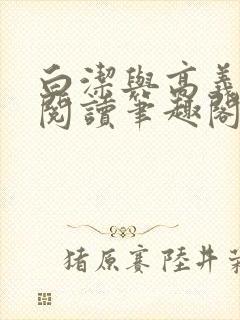 白潔與高義
閱讀筆趣閣
猪原赛陸井